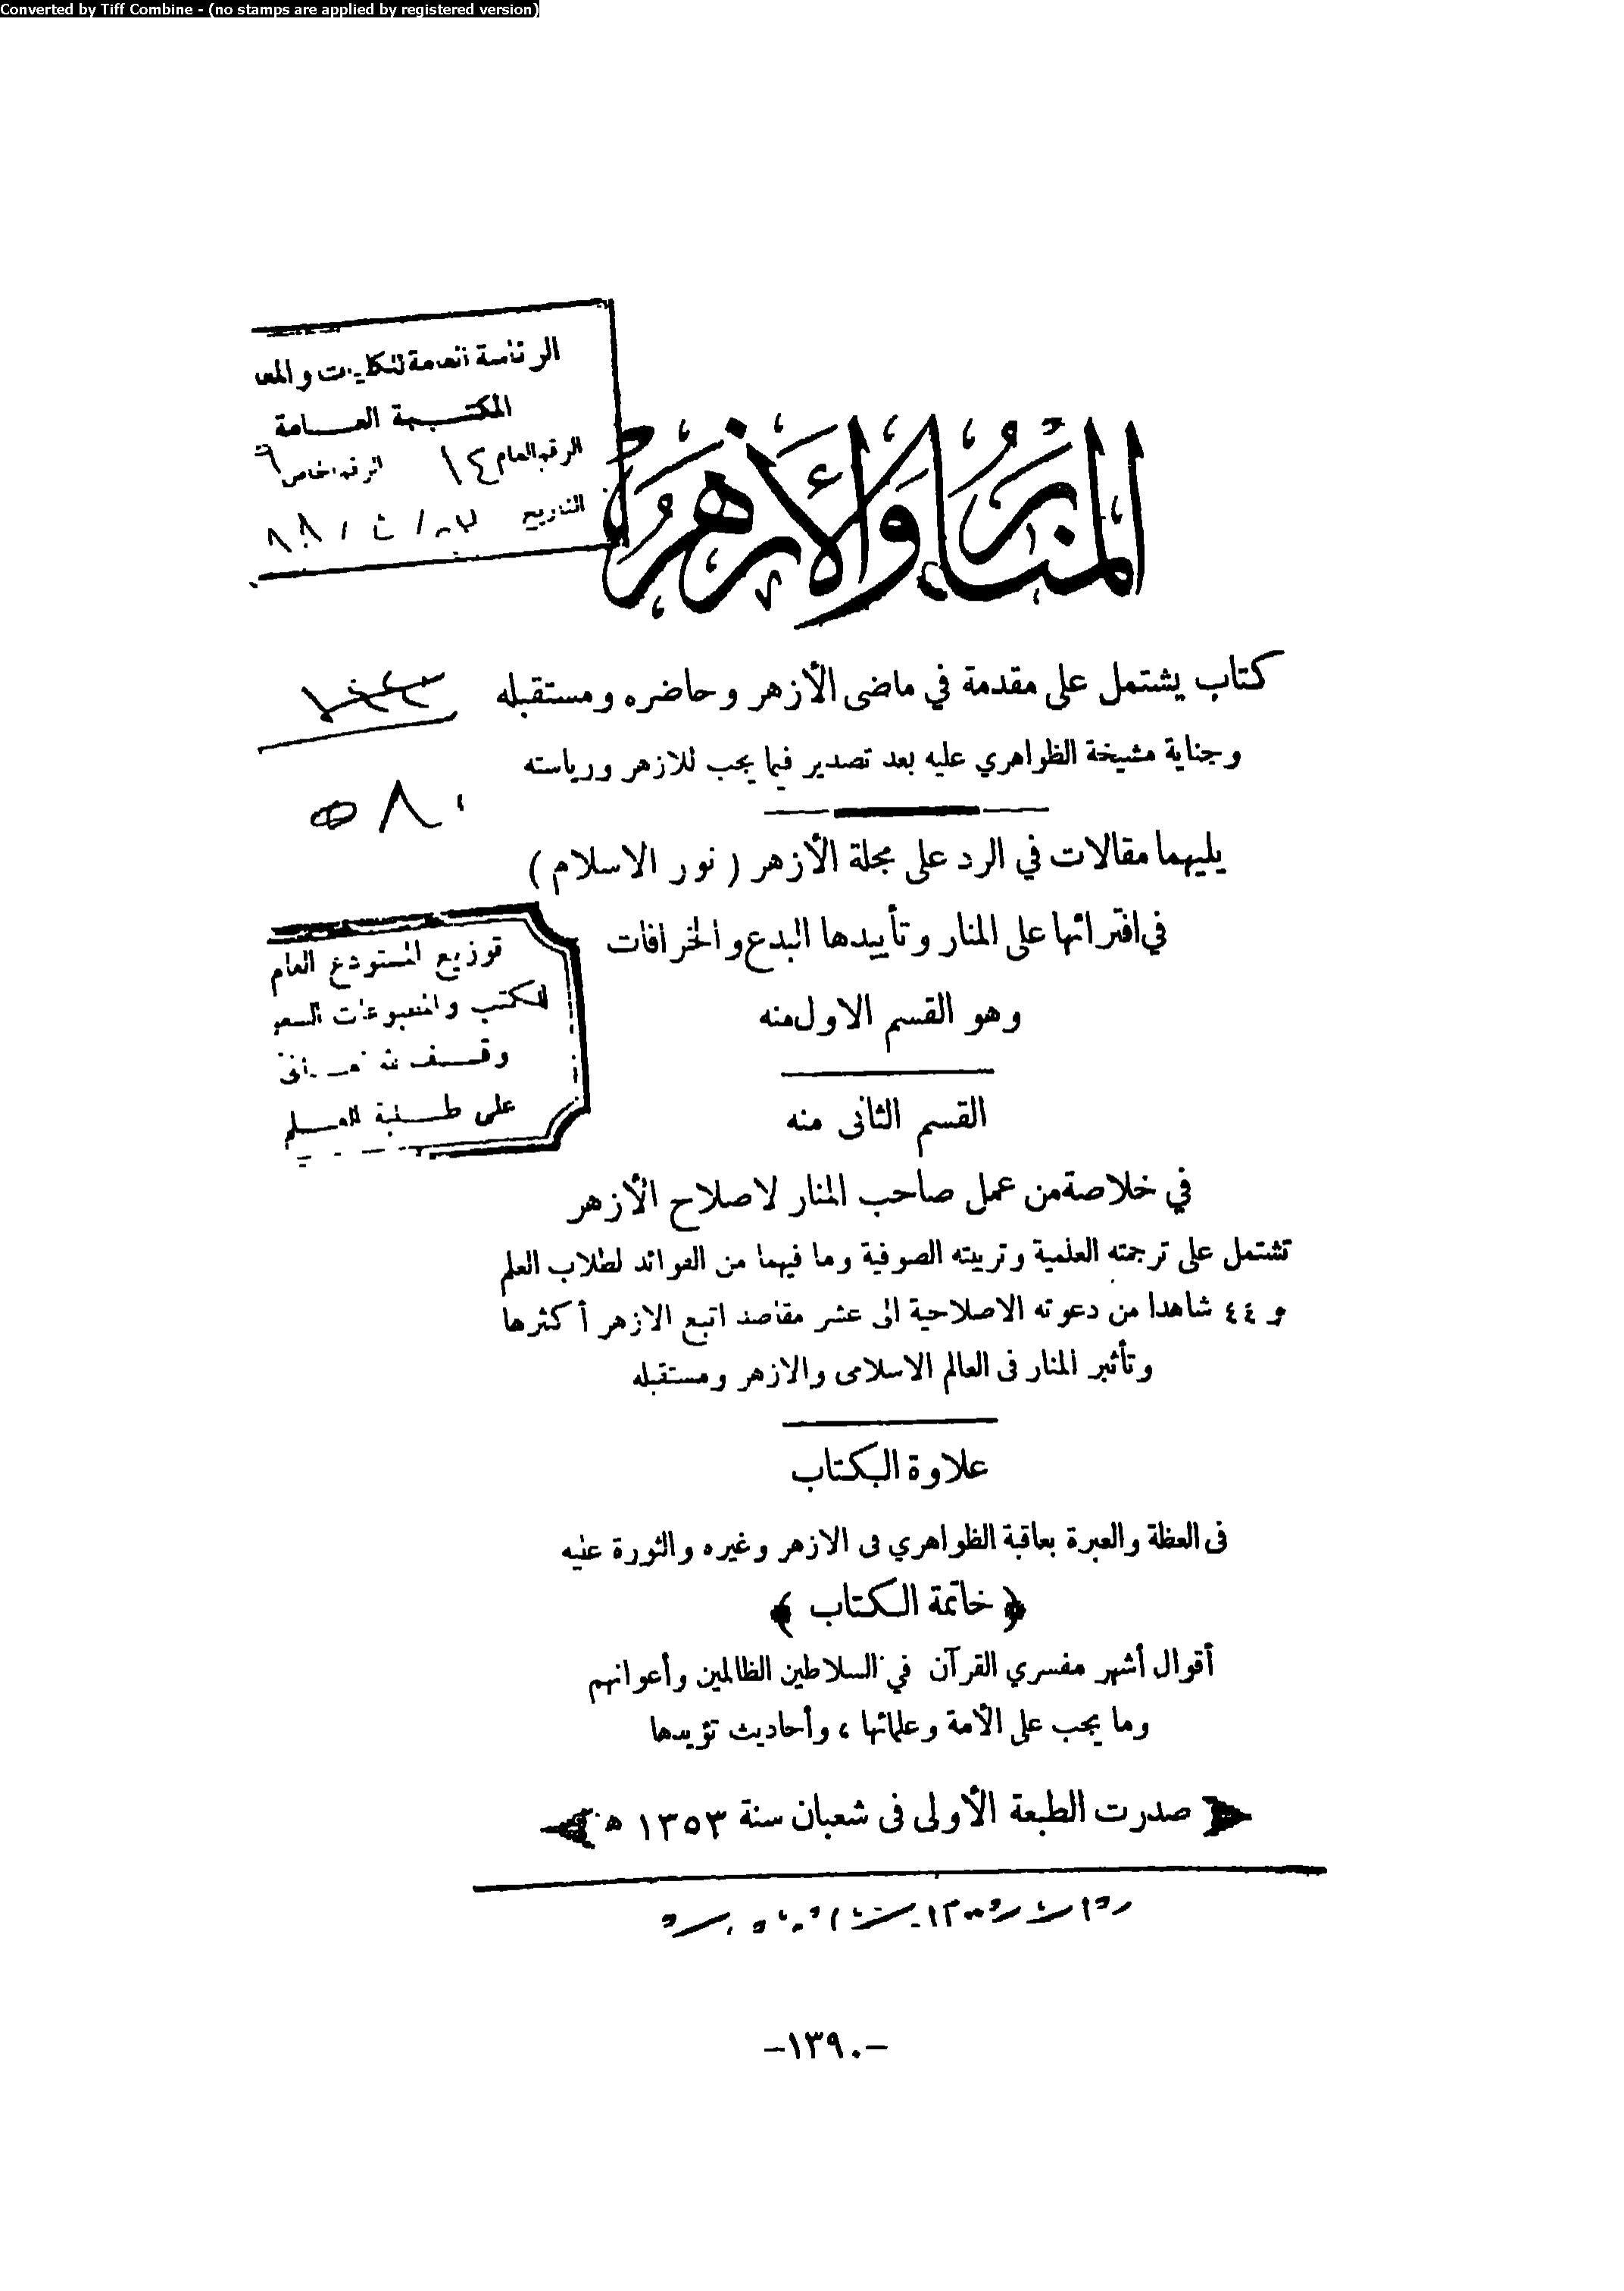 Converted by Tiff Combine - (no stamps are applied by registered version)
الرئاسة العامة للكليات والمعا
المكتبة العامة
الرقم العام ١٤ الرقم الخاص
التاريخ
المنار والأزهر
كتاب يشتمل على مقدمة في ماضى الأزهر وحاضره ومستقبله
وجناية مشيخة الظواهري عليه بعد تصدير فيما يجب للازهر ورياسته
٥٨٠
يليهما مقالات في الرد على مجلة الأزهر ( نور الاسلام )
في افترائها على المنار وتأييدها البدع والخرافات
توزيع المستودع العام
للكتب والمطبوعات السعو
وقف لله تعالى
على طلبة العلم
وهو القسم الاول منه
القسم الثانى منه
في خلاصة من عمل صاحب المنار لاصلاح الأزهر
تشتمل على ترجمته العلمية وتربيته الصوفية وما فيهما من الفوائد لطلاب العلم
و ٤٤ شاهدا من دعوته الاصلاحية الى عشر مقاصد اتبع الازهر أكثرها
وتأثير المنار فى العالم الاسلامى والازهر ومستقبله
علاوة الكتاب
فى العظة والعبرة بعاقبة الظواهري فى الازهر وغيره والثورة عليه
﴿ خاتمة الكتاب ﴾
أقوال أشهر مفسري القرآن في السلاطين الظالمين وأعوانهم
وما يجب على الأمة وعلمائها ، وأحاديث تؤيدها
صدرت الطبعة الأولى فى شعبان سنة ١٣٥٣ ه
-١٣٩٠-